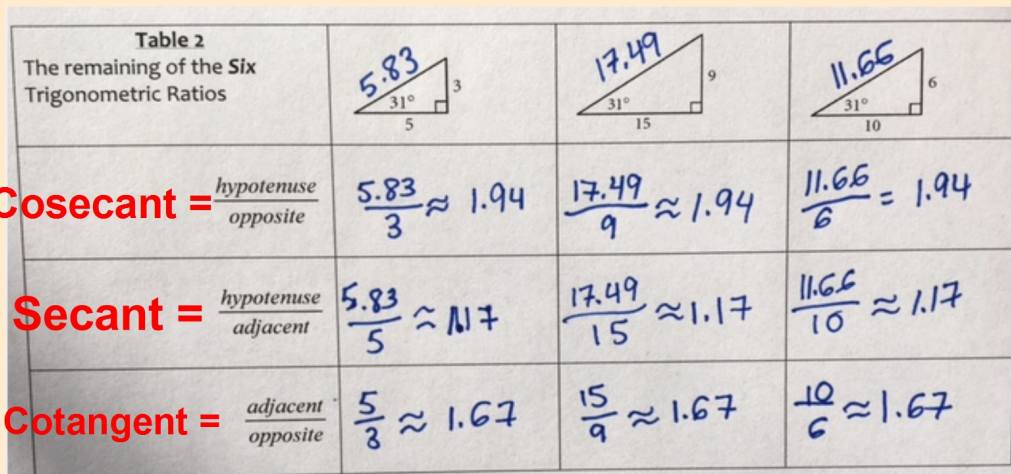 Table 2
The remaining of the Six
Trigonometric Ratios
5.83
3
31°
5
17.49
9
31°
15
11.66
6
31°
10
Cosecant = hypotenuse/opposite
5.83/3 ≈ 1.94
17.49/9 ≈ 1.94
11.66/6 = 1.94
Secant = hypotenuse/adjacent
5.83/5 ≈ 1.17
17.49/15 ≈ 1.17
11.66/10 ≈ 1.17
Cotangent = adjacent/opposite
5/3 ≈ 1.67
15/9 ≈ 1.67
10/6 ≈ 1.67